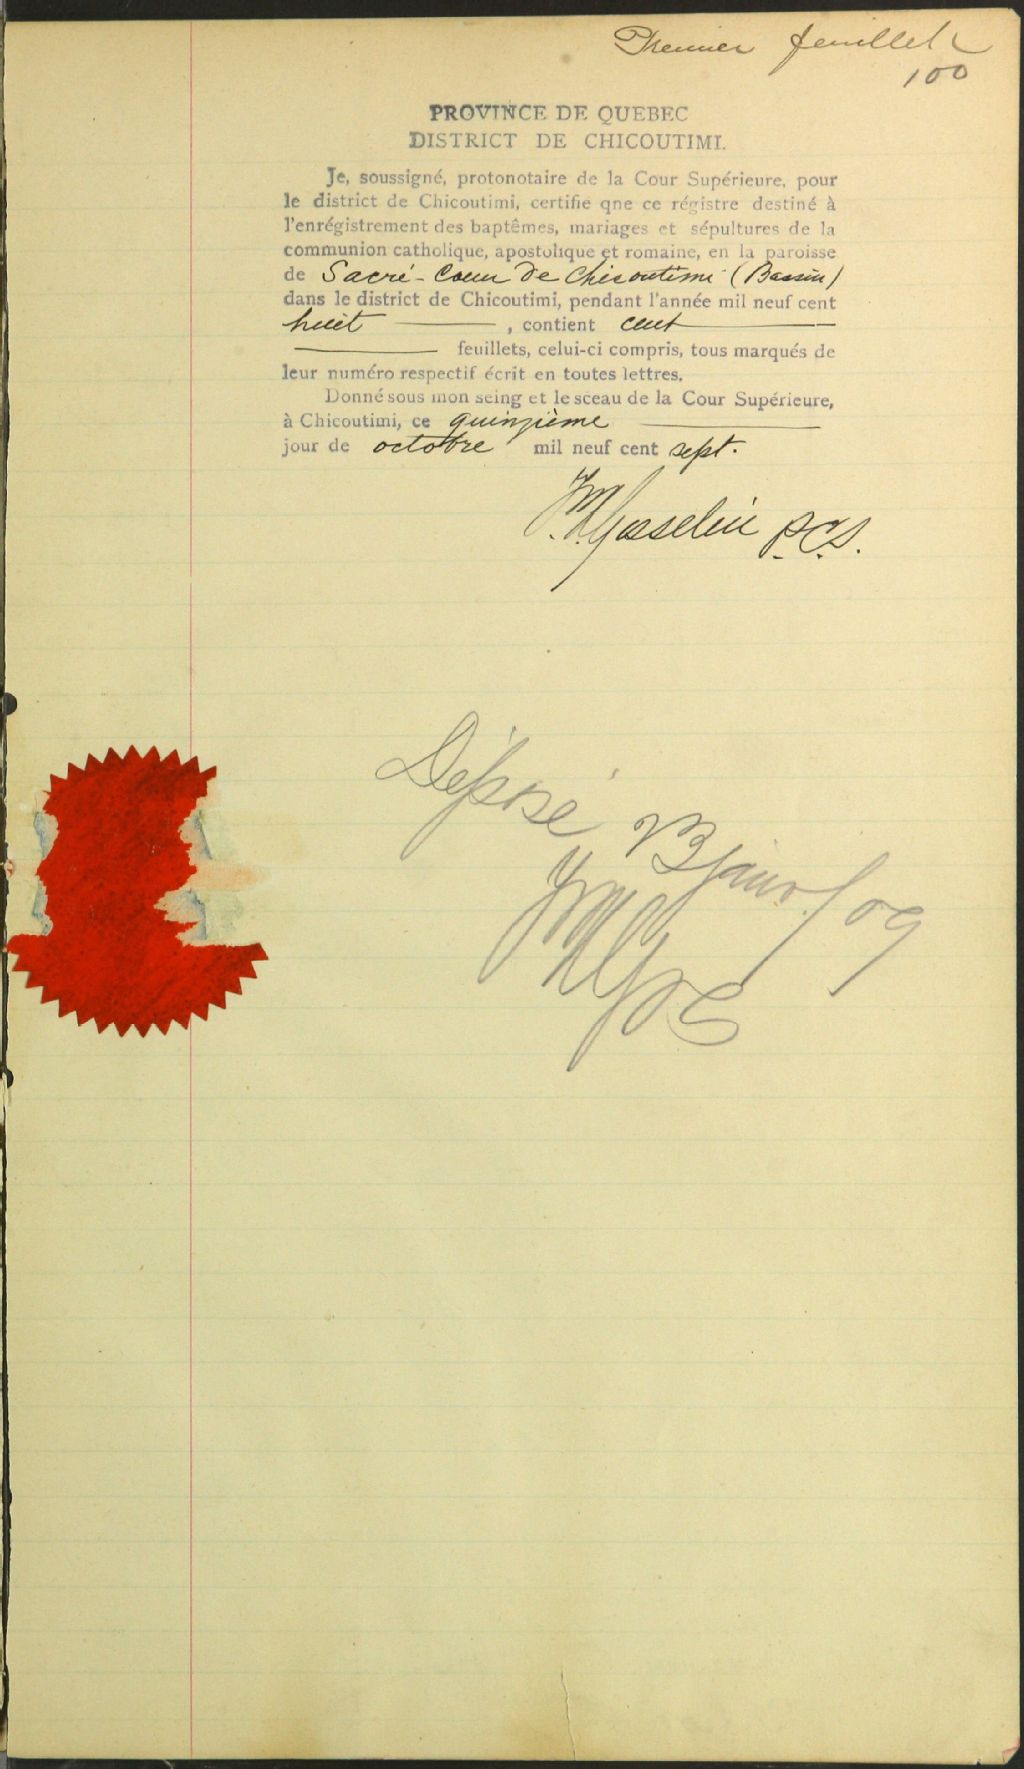 Premier feuillet
100
PROVINCE DE QUEBEC
DISTRICT DE CHICOUTIMI.
Je, soussigné, protonotaire de la Cour Supérieure, pour
le district de Chicoutimi, certifie qne ce régistre destiné à
l'enrégistrement des baptêmes, mariages et sépultures de la
communion catholique, apostolique et romaine, en la paroisse
de Sacré-Coeur de Chicoutimi (Bassin)
dans le district de Chicoutimi, pendant l'année mil neuf cent
huit , contient cent
feuillets, celui-ci compris, tous marqués de
leur numéro respectif écrit en toutes lettres.
Donné sous mon seing et le sceau de la Cour Supérieure,
à Chicoutimi, ce quinzième
jour de octobre mil neuf cent sept.
Gosselin P.C.S.
Déposé janv/09